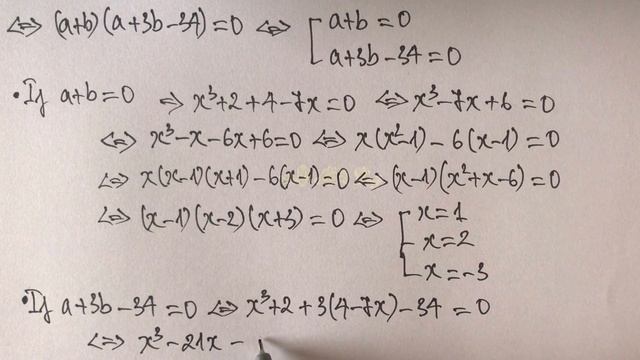 ⇔ (a+b)(a+3b-34)=0 ⇔ [ a+b=0
a+3b-34=0
• If a+b=0 ⇒ x³+2+4-7x=0 ⇔ x³-7x+6=0
⇔ x³-x-6x+6=0 ⇔ x(x²-1)-6(x-1)=0
⇔ x(x-1)(x+1)-6(x-1)=0 ⇔ (x-1)(x²+x-6)=0
⇔ (x-1)(x-2)(x+3)=0 ⇔ [ x=1
x=2
x=-3
• If a+3b-34=0 ⇔ x³+2+3(4-7x)-34=0
⇔ x³-21x-